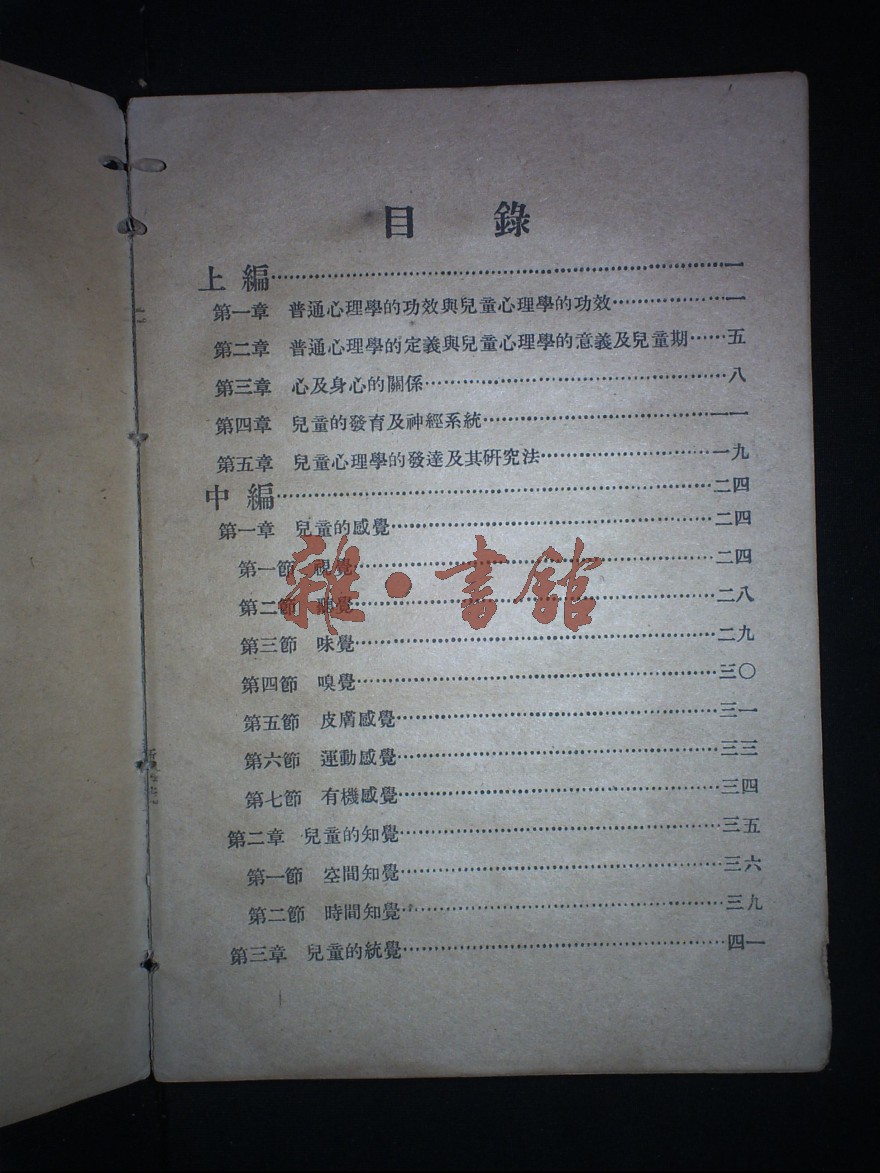 目錄
上編……一
第一章 普通心理學的功效與兒童心理學的功效……一
第二章 普通心理學的定義與兒童心理學的意義及兒童期……五
第三章 心及身心的關係……八
第四章 兒童的發育及神經系統……一一
第五章 兒童心理學的發達及其研究法……一九
中編……二四
第一章 兒童的感覺……二四
第一節 視覺……二四
第二節 聽覺……二八
第三節 味覺……二九
第四節 嗅覺……三〇
第五節 皮膚感覺……三一
第六節 運動感覺……三三
第七節 有機感覺……三四
第二章 兒童的知覺……三五
第一節 空間知覺……三六
第二節 時間知覺……三九
第三章 兒童的統覺……四一
雜·書館